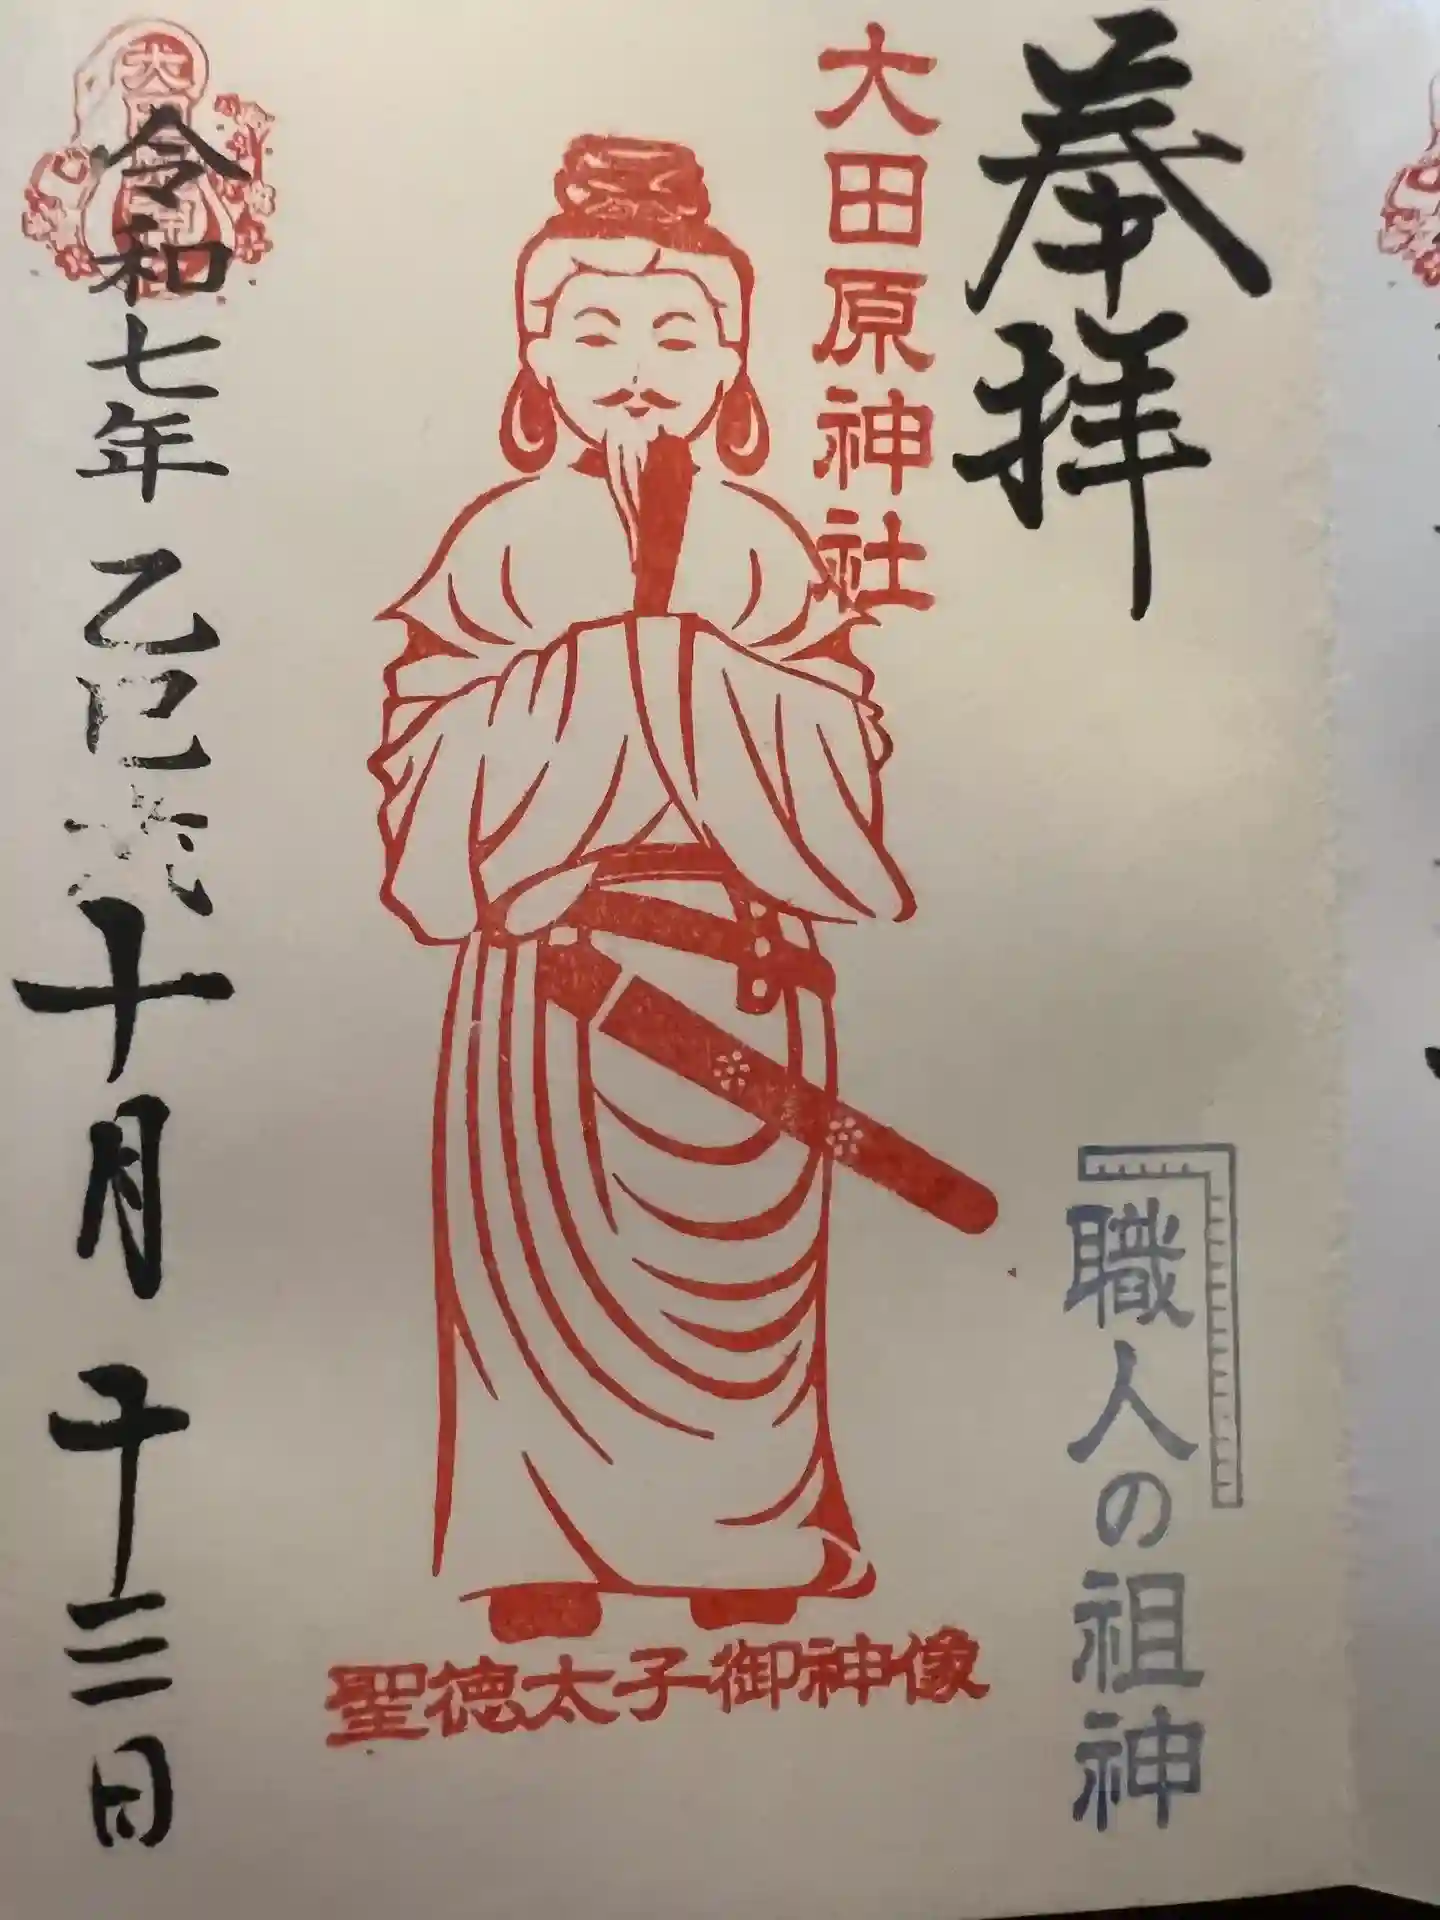 奉拝
大田原神社
職人の祖神
聖徳太子御神像
令和七年 乙巳 十月 十三日